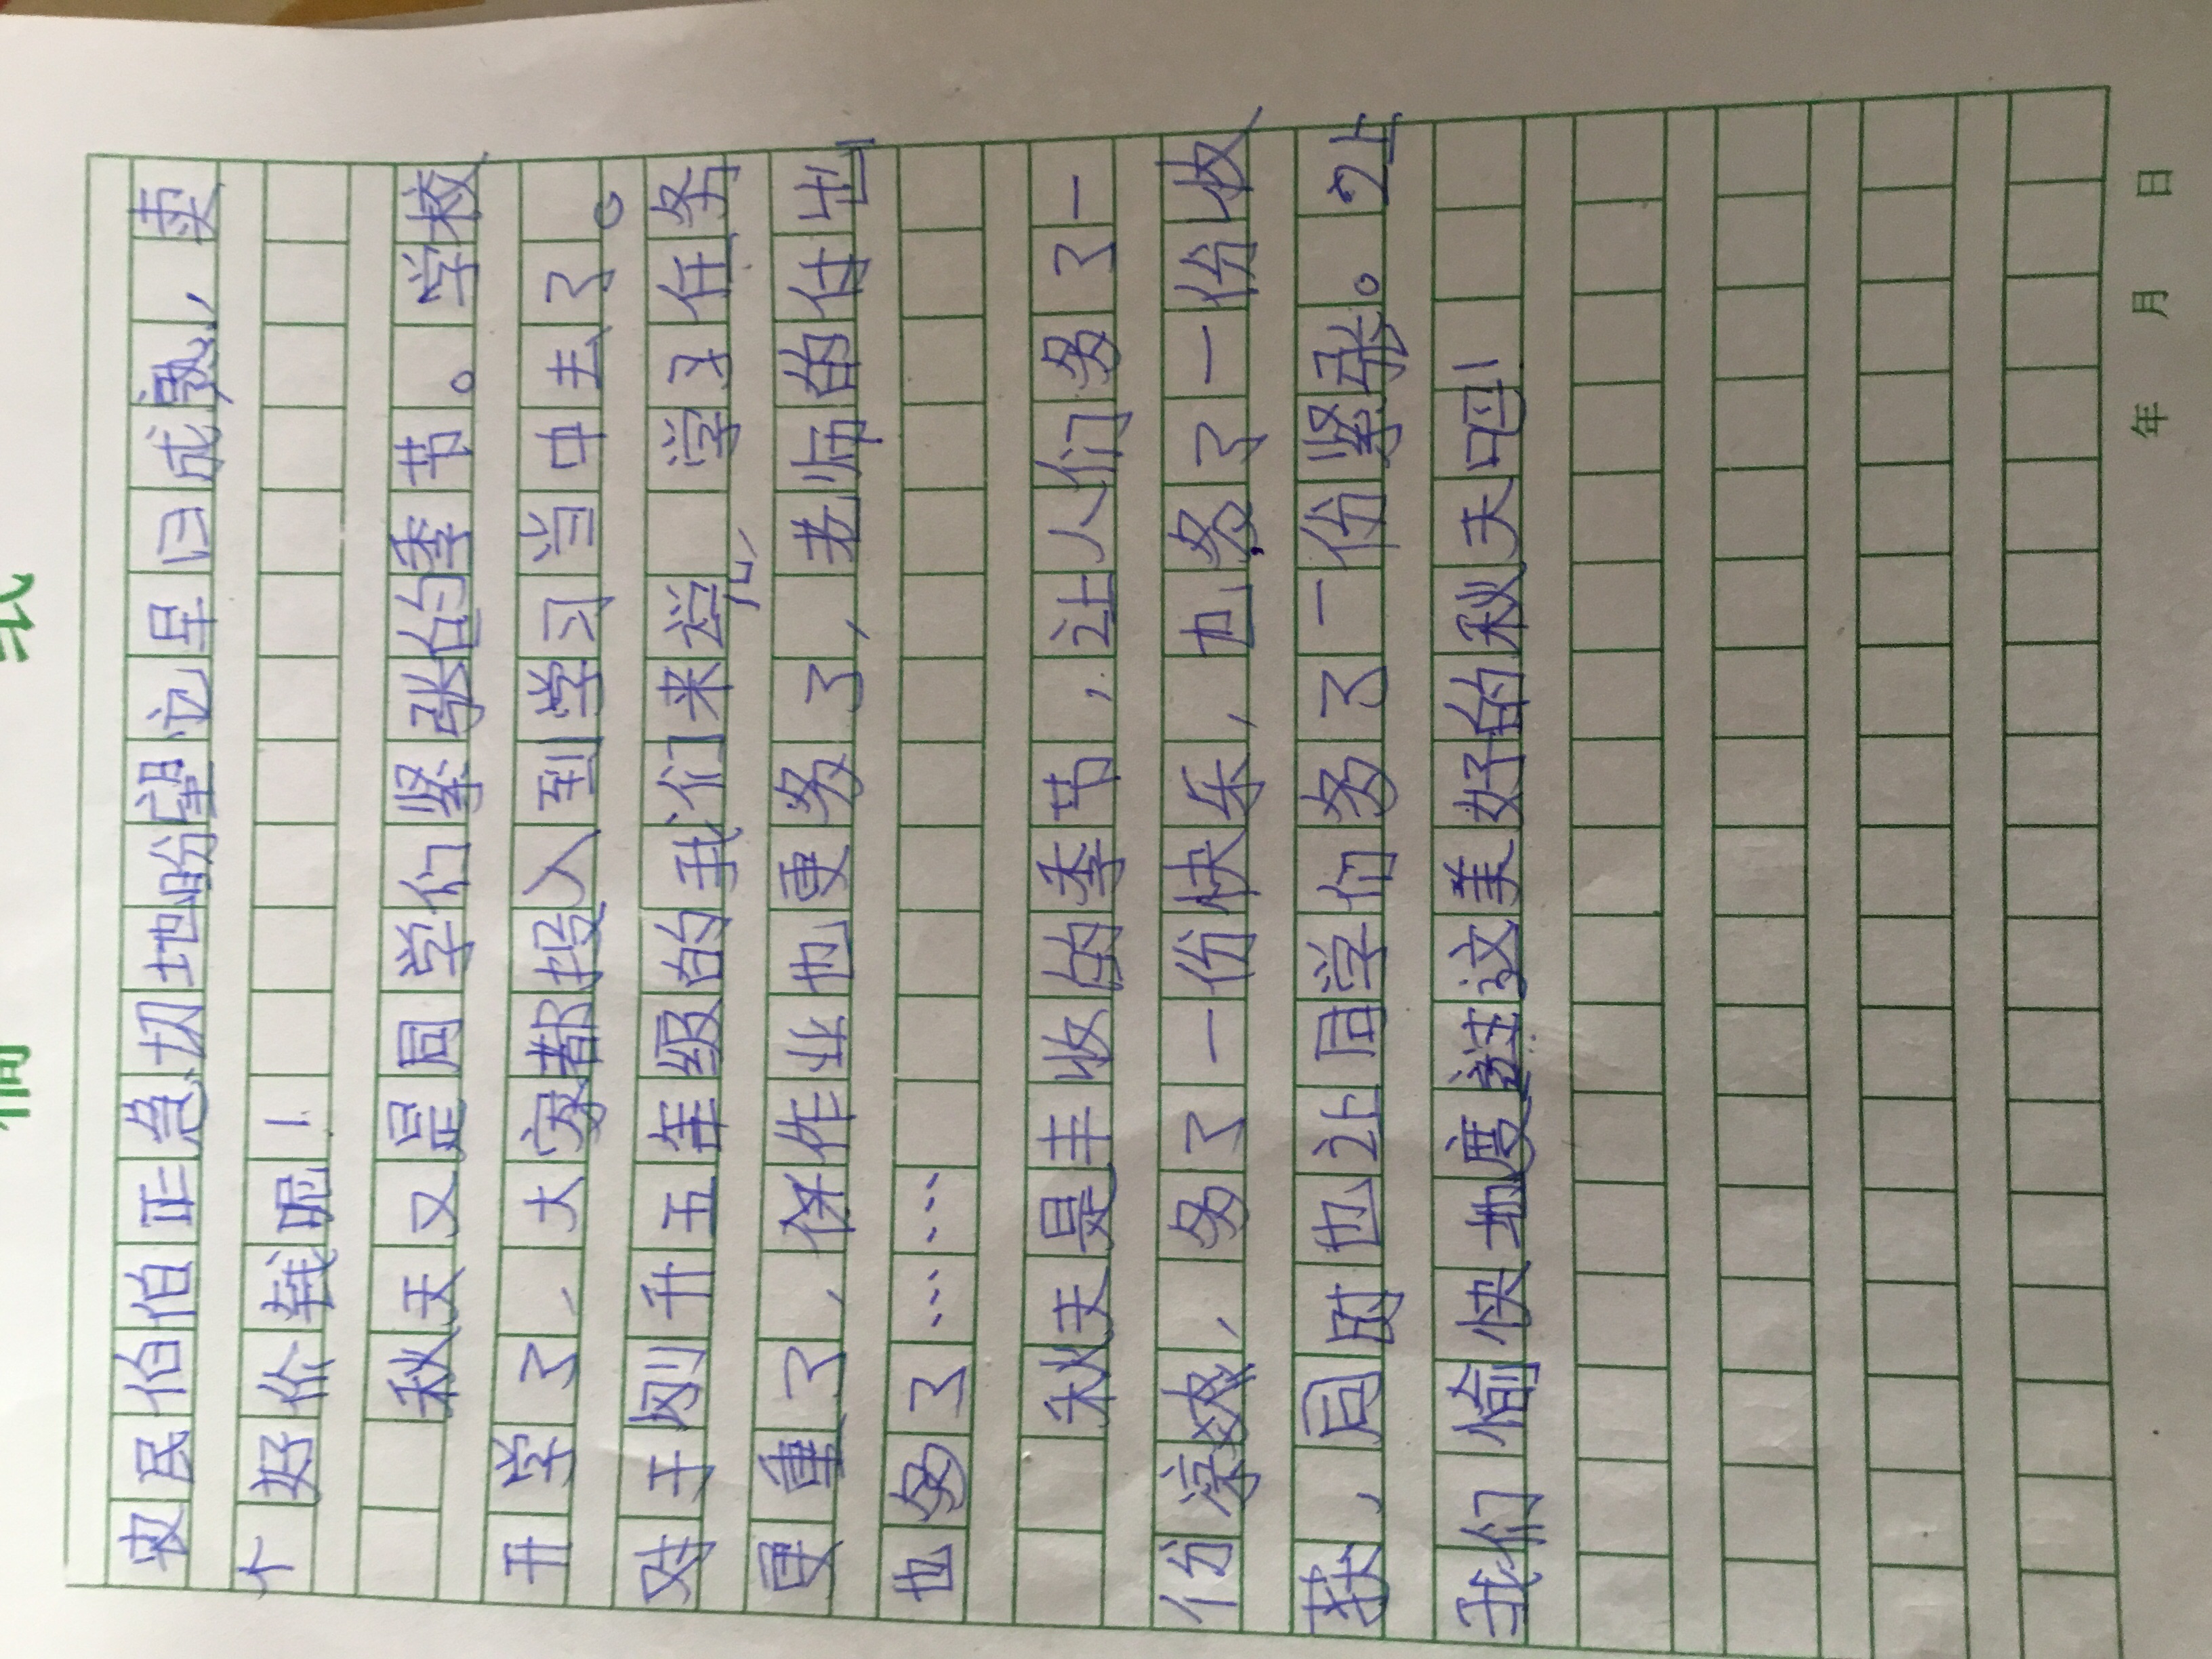 稿 纸
农民伯伯正急切地盼望它早日成熟,卖
个好价钱呢!
秋天又是同学们紧张的季节。学校
开学了,大家都投入到学习当中去了。
对于刚升五年级的我们来说,学习任务
更重了,课作业也更多了,老师的付出
也多了……
秋天是丰收的季节,让人们多了一
份凉爽,多了一份快乐,也多了一份收
获,同时也让同学们多了一份紧张。让
我们愉快地度过这美好的秋天吧!
年 月 日